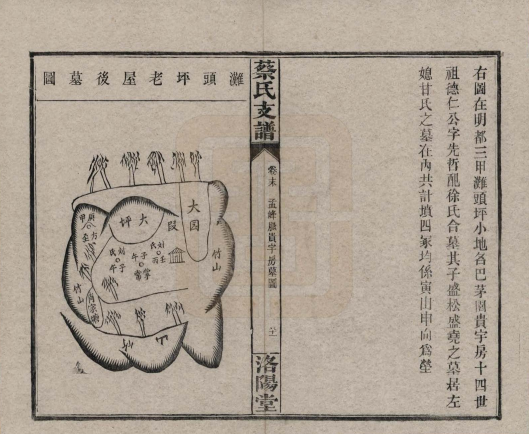 右圖在明都三甲灘頭坪小地名巴茅園貴字房十四世
祖德仁公字先哲配徐氏合墓其子盛松盛堯之墓居左
媳甘氏之墓在內共計墳四冢均係寅山申向爲塋
蔡氏支譜
卷末
孟峰 貴字房墓圖
洛陽堂
灘頭坪老屋後墓圖
大園
段
大坪
竹山
竹山